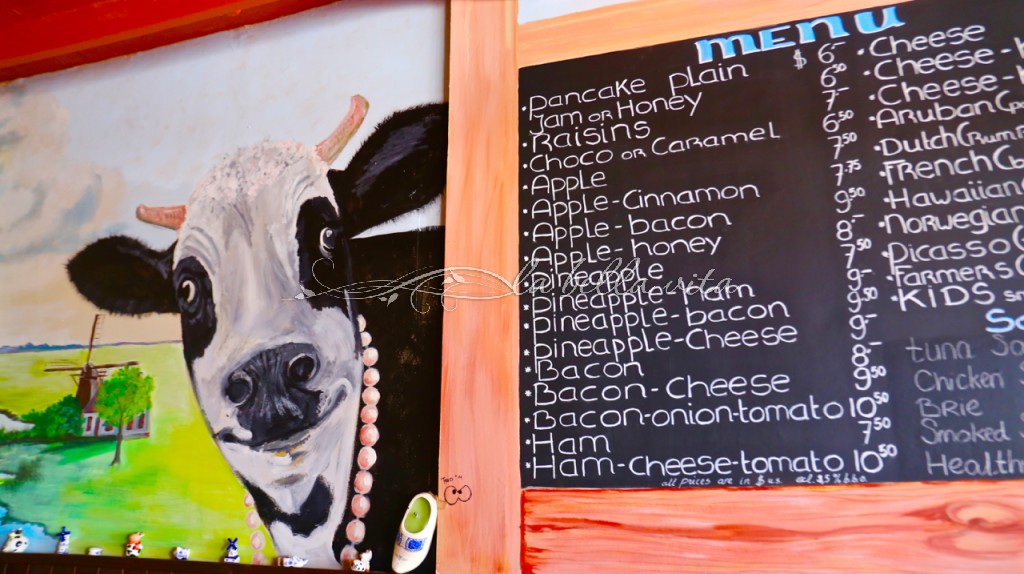 MENU
·Pancake plain $6-
Jam or Honey 6⁵⁰
·Raisins 7-
·Choco or Caramel 6⁵⁰
·Apple 7⁵⁰
·Apple-Cinnamon 7·⁷⁵
·Apple-bacon 9⁵⁰
·Apple-honey 8-
·Pineapple 7⁵⁰
·Pineapple-Ham 9-
·Pineapple-bacon 9⁵⁰
·Pineapple-Cheese 9-
·Bacon 8-
·Bacon-Cheese 9⁵⁰
·Bacon-onion-tomato 10⁵⁰
·Ham 7⁵⁰
·Ham-cheese-tomato 10⁵⁰
all prices are in $ us.
·Cheese
·Cheese-
·Cheese-
·Aruban (
·Dutch (Rum
·French (
·Hawaiian
·Norwegian
·Picasso (
·Farmers (
·KIDS
tuna
Chicken
Brie
Smoked
Health
la bella vita